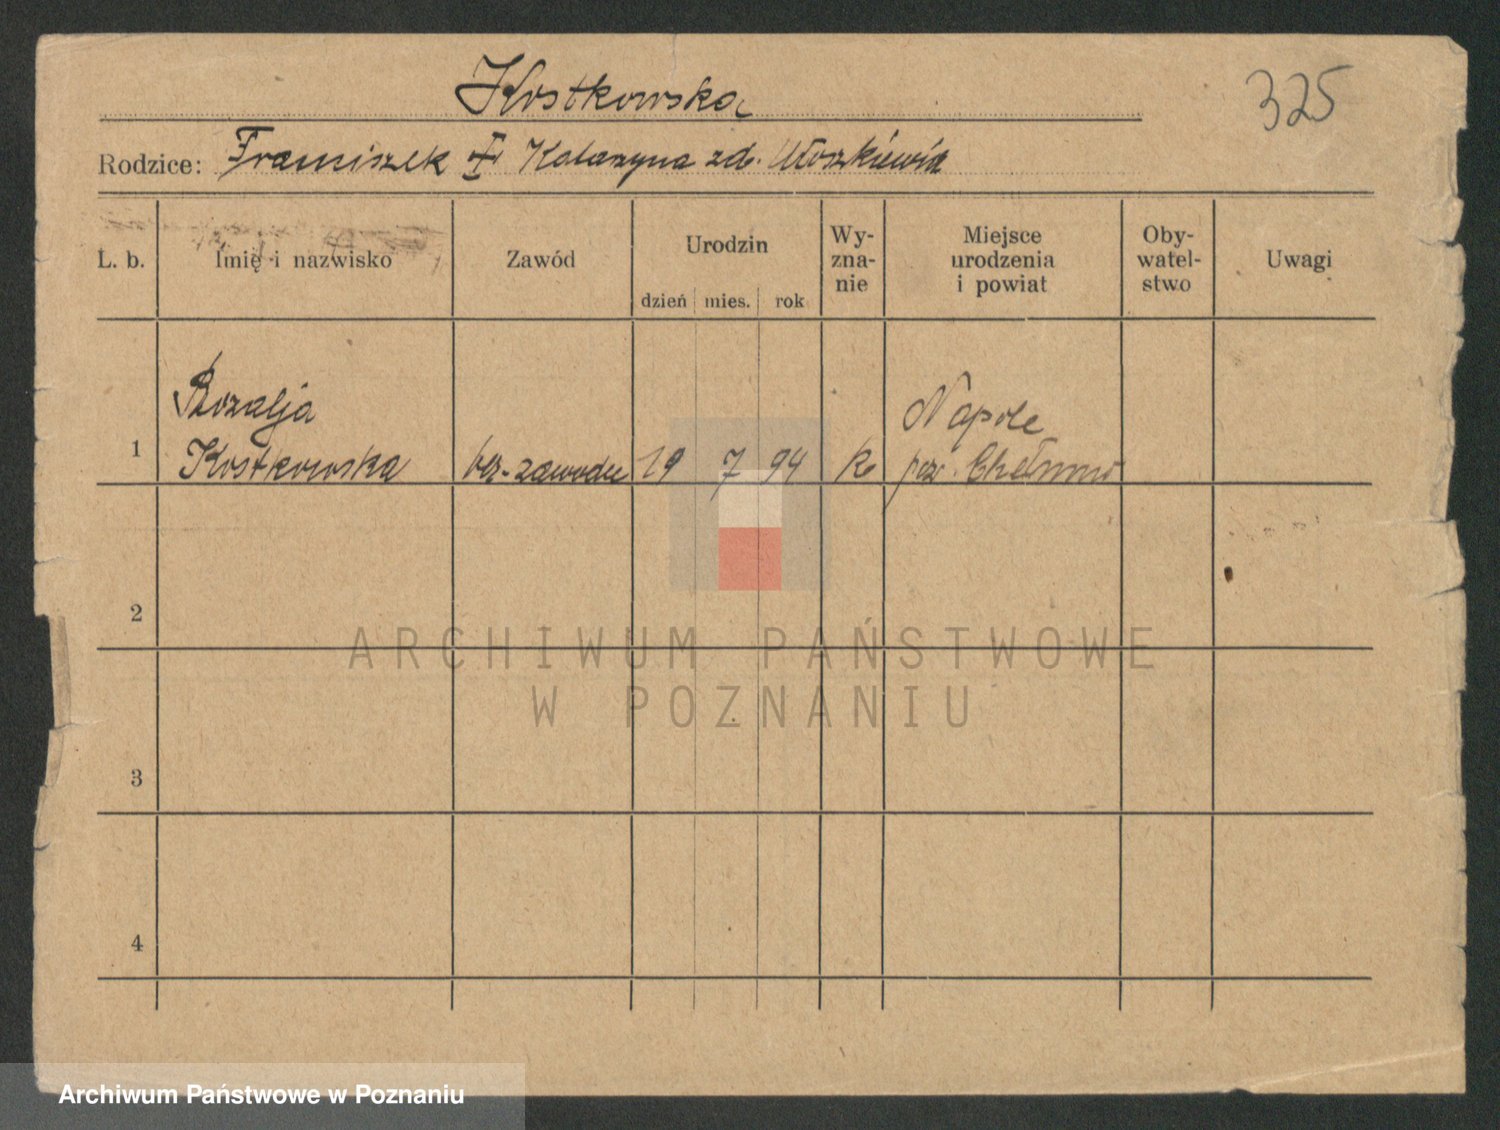 Kostkowska
325
Rodzice: Franciszek Katarzyna zd.
L. b. Imię i nazwisko Zawód Urodzin dzień mies. rok Wy-zna-nie Miejsce urodzenia i powiat Oby-watel-stwo Uwagi
Rozalja Napole
1 Kostkowska bez-zawodu 19 7 94 k. pow. Chełmno
2
ARCHIWUM PAŃSTWOWE
W POZNANIU
3
4
Archiwum Państwowe w Poznaniu